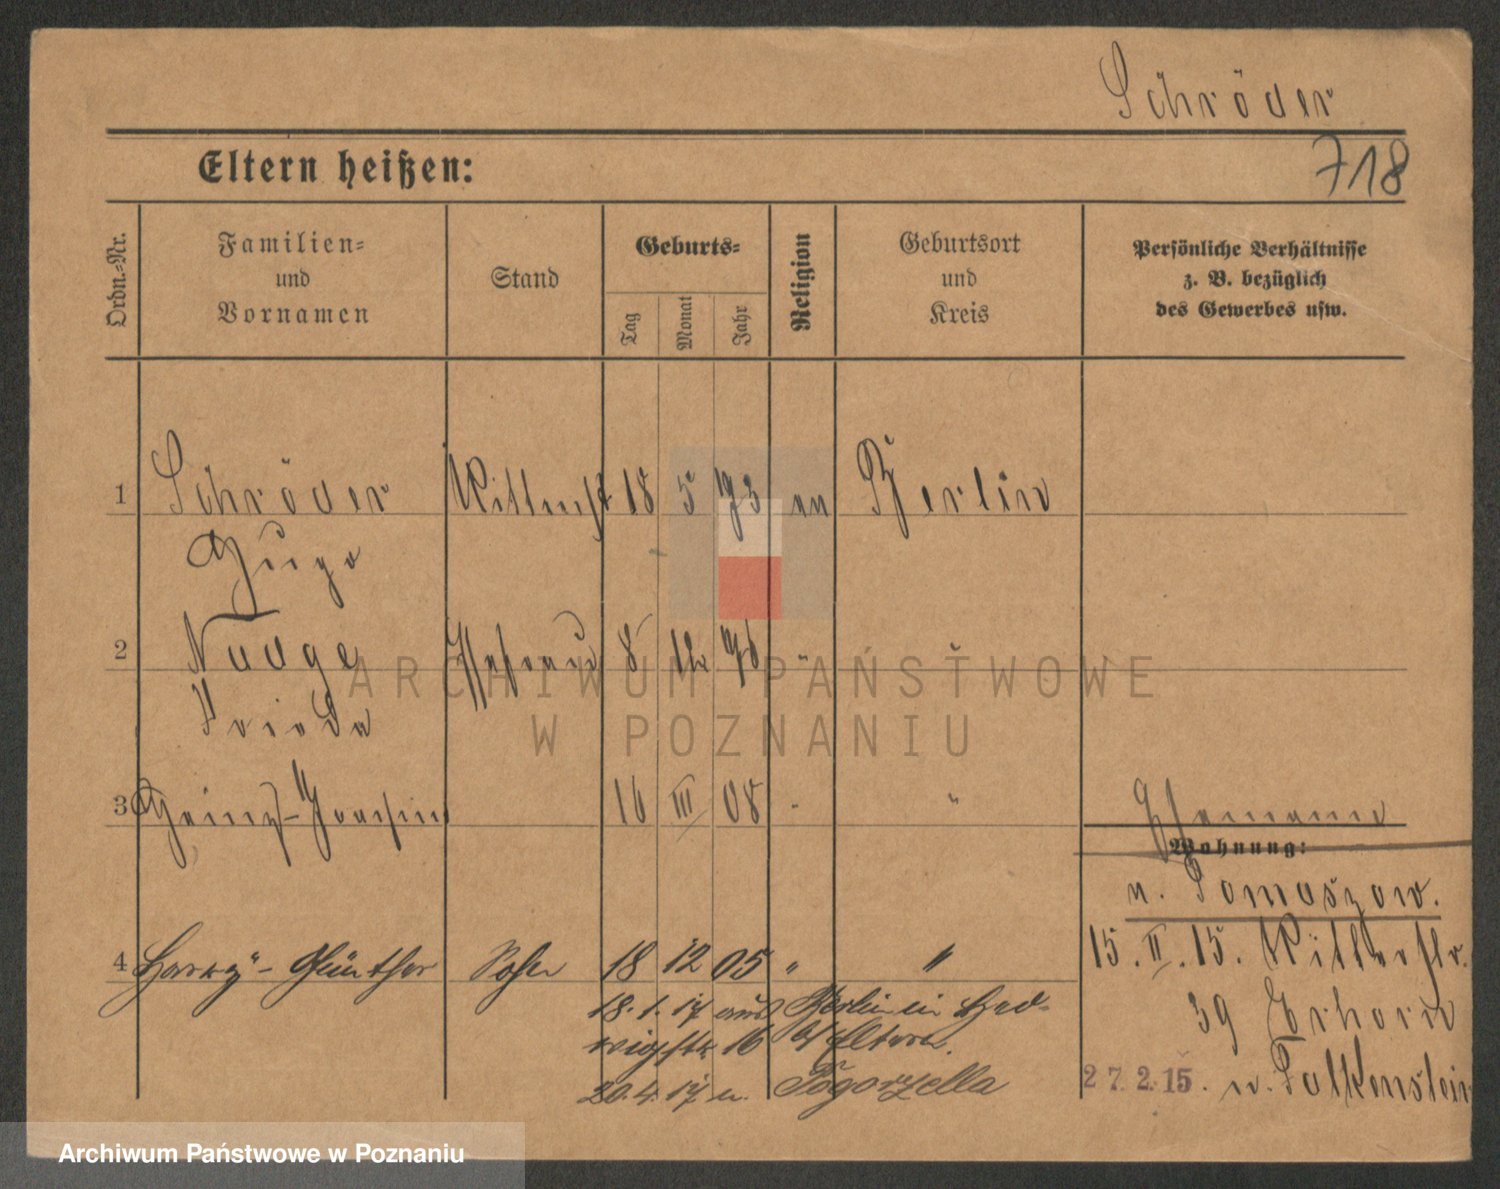 Schröder
Eltern heißen:
718
Ordn.=Nr.
Familien=
und
Vornamen
Stand
Geburts=
Tag
Monat
Jahr
Religion
Geburtsort
und
Kreis
Persönliche Verhältnisse
z. B. bezüglich
des Gewerbes usw.
1 Schröder 18 5 73 Berlin
Hugo
2 Ehefrau 8 12 "
Frieda
3 Heinz-Joachim 16 III 08 " "
Ehemann
Wohnung:
n. Tomaszow.
4 Harry - Günther Sohn 18 12 05 " "
15. II. 15. Ritterstr.
18. 1. 17 aus Berlin in Hed-
39
wigstr. 16 b/ Eltern.
27.2.15. n. Falkenstein
20. 4. 17 n. Pogorzella
ARCHIWUM PAŃSTWOWE
W POZNANIU
Archiwum Państwowe w Poznaniu